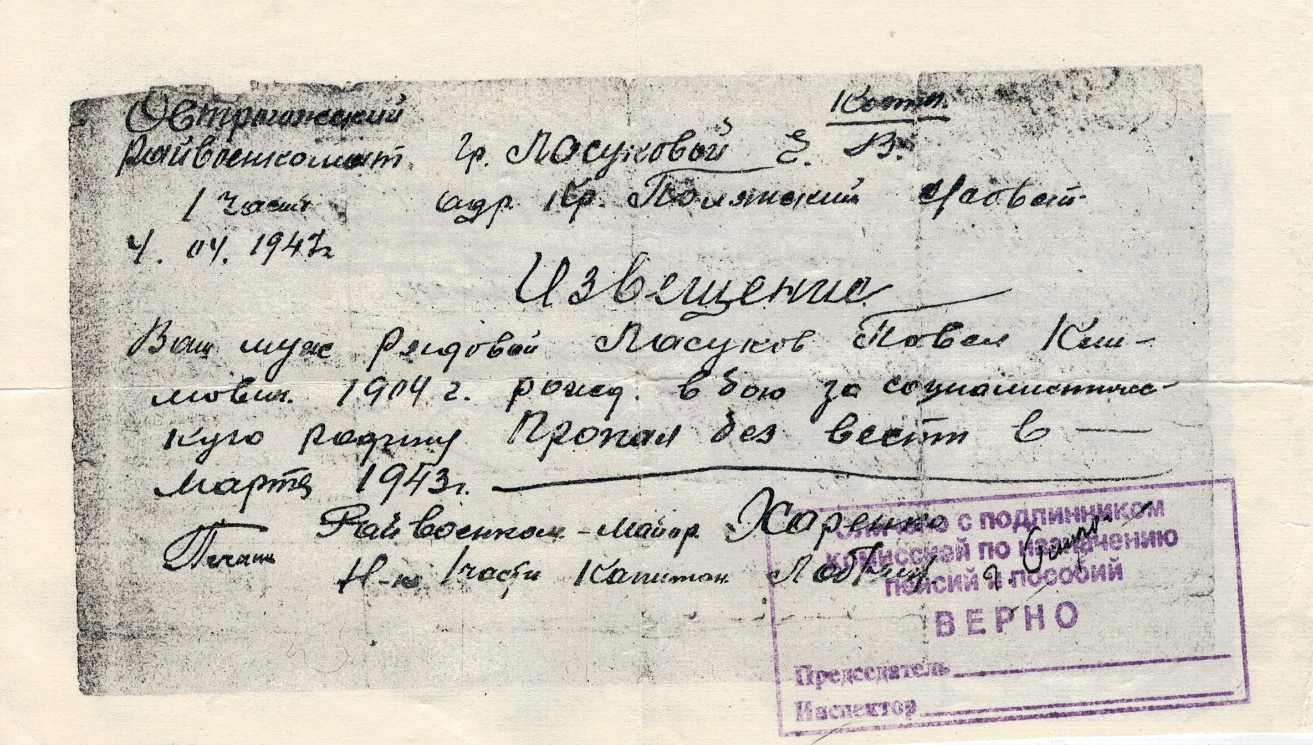 Острогожский
Копия.
Райвоенкомат гр. Ласуковой Е. В.
1 часть адр. Кр. Полянский с/совет
4. 04. 1947г
Извещение
Ваш муж рядовой Ласуков Павел Кли-
мович. 1904 г. рожд. в бою за социалистичес-
кую родину Пропал без вести в —
марте 1943г.
Райвоенком - майор Харенко
Печать
Н-к 1 части Капитан
Сличено с подлинником
комиссией по назначению
пенсий и пособий
ВЕРНО
Председатель
Инспектор